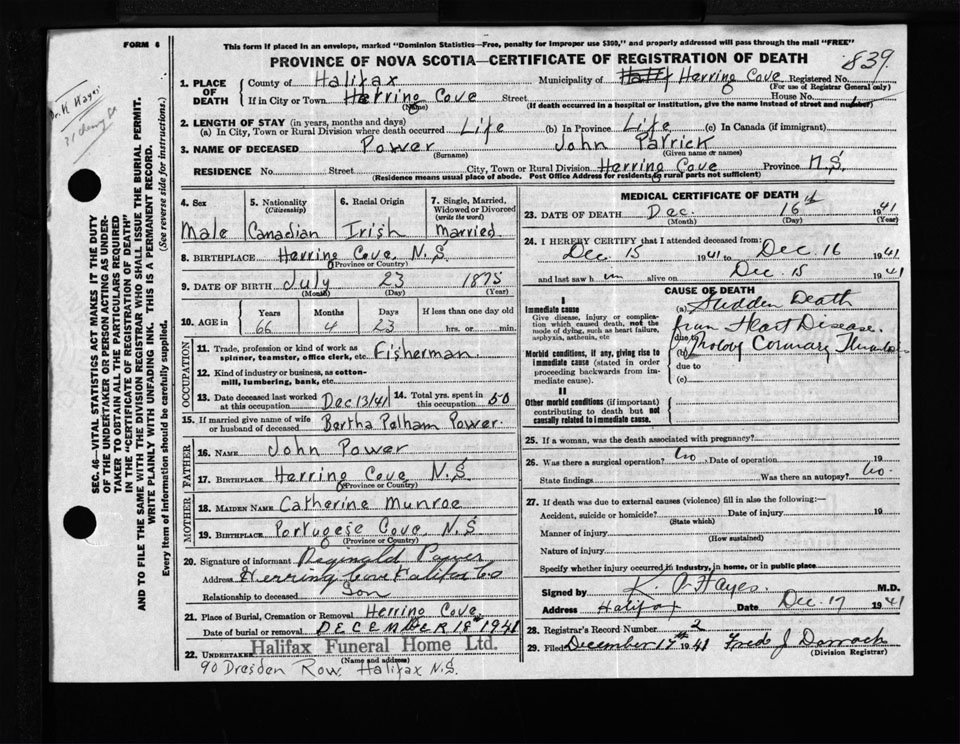 FORM 6
This form if placed in an envelope, marked "Dominion Statistics—Free, penalty for improper use $300," and properly addressed will pass through the mail "FREE"
PROVINCE OF NOVA SCOTIA—CERTIFICATE OF REGISTRATION OF DEATH
839
1. PLACE OF DEATH
County of Halifax
Municipality of Herring Cove Registered No.
(For use of Registrar General only)
If in City or Town Herring Cove Street House No.
(Name)
(If death occurred in a hospital or institution, give the name instead of street and number)
2. LENGTH OF STAY (in years, months and days)
(a) In City, Town or Rural Division where death occurred Life (b) In Province Life (c) In Canada (if immigrant)
3. NAME OF DECEASED Power John Patrick
(Surname) (Given name or names)
RESIDENCE No. Street City, Town or Rural Division Herring Cove Province N.S.
(Residence means usual place of abode. Post Office Address for residents of rural parts not sufficient)
4. Sex
Male
5. Nationality
(Citizenship)
Canadian
6. Racial Origin
Irish
7. Single, Married, Widowed or Divorced
(write the word)
Married.
8. BIRTHPLACE Herring Cove N.S.
(Province or Country)
9. DATE OF BIRTH July 23 1875
(Month) (Day) (Year)
10. AGE in
Years Months Days If less than one day old
66 4 23 hrs. or min.
OCCUPATION
11. Trade, profession or kind of work as spinner, teamster, office clerk, etc. Fisherman.
12. Kind of industry or business, as cotton-mill, lumbering, bank, etc.
13. Date deceased last worked at this occupation Dec 13/41
14. Total yrs. spent in this occupation 50
15. If married give name of wife or husband of deceased Bertha Pelham Power.
FATHER
16. NAME John Power
17. BIRTHPLACE Herring Cove N.S.
(Province or Country)
MOTHER
18. MAIDEN NAME Catherine Munroe
19. BIRTHPLACE Portugese Cove, N.S.
(Province or Country)
20. Signature of informant Reginald Power
Address Herring Cove Halifax Co
Relationship to deceased Son
21. Place of Burial, Cremation or Removal Herring Cove.
Date of burial or removal DECEMBER 18th 1941
22. UNDERTAKER Halifax Funeral Home Ltd.
(Name and address)
90 Dresden Row. Halifax N.S.
MEDICAL CERTIFICATE OF DEATH
23. DATE OF DEATH Dec. 16th 1941
(Month) (Day) (Year)
24. I HEREBY CERTIFY that I attended deceased from:
Dec 15 1941 to Dec 16 1941
and last saw him alive on Dec 15 1941
CAUSE OF DEATH
I
Immediate cause
Give disease, injury or complication which caused death, not the mode of dying, such as heart failure, asphyxia, asthenia, etc
(a) Sudden Death
from Heart Disease.
due to
Morbid conditions, if any, giving rise to immediate cause (stated in order proceeding backwards from immediate cause).
(b) Coronary
due to
(c)
II
Other morbid conditions (if important) contributing to death but not causally related to immediate cause.
25. If a woman, was the death associated with pregnancy?
26. Was there a surgical operation? No. Date of operation 19
State findings Was there an autopsy? No.
27. If death was due to external causes (violence) fill in also the following:—
Accident, suicide or homicide? Date of injury 19
(State which)
Manner of injury
(How sustained)
Nature of injury
Specify whether injury occurred in industry, in home, or in public place
Signed by K. A. Hayes. M.D.
Address Halifax Date Dec. 17 1941
28. Registrar's Record Number 2
29. Filed December 17th 1941 Fred J Darrach
(Division Registrar)
Dr. K Hayes
SEC. 46—VITAL STATISTICS ACT MAKES IT THE DUTY OF THE UNDERTAKER OR PERSON ACTING AS UNDERTAKER TO OBTAIN ALL THE PARTICULARS REQUIRED IN THE "CERTIFICATE OF REGISTRATION OF DEATH" AND TO FILE THE SAME WITH THE DIVISION REGISTRAR WHO SHALL ISSUE THE BURIAL PERMIT.
WRITE PLAINLY WITH UNFADING INK. THIS IS A PERMANENT RECORD.
Every item of information should be carefully supplied. (See reverse side for instructions.)